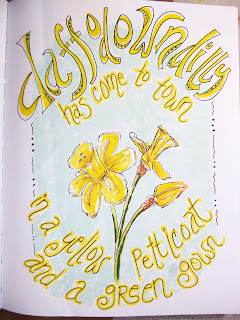 daffodowndilly
has come to town
in a yellow petticoat
and a green gown